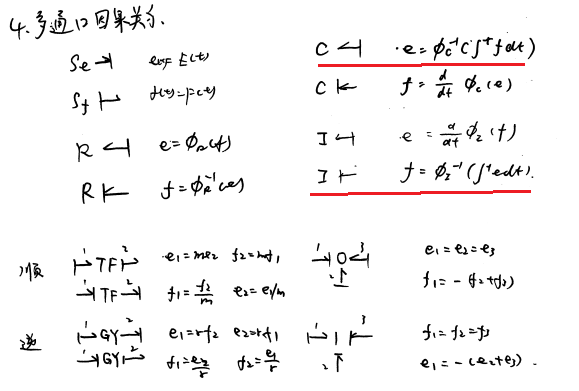 4. 多通口因果关系.
Se ⇁| e(t)=E(t)
Sf |⇀ f(t)=F(t)
R ↽| e=Φ_R(f)
R |↽ f=Φ_R^{-1}(e)
C ↽| e=Φ_C^{-1}(∫^t f dt)
C |↽ f=d/dt Φ_C(e)
I ↽| e=d/dt Φ_I(f)
I |↽ f=Φ_I^{-1}(∫^t e dt).
顺 |¹⇀TF|²⇀ e₁=me₂ f₂=mf₁
¹⇀|TF²⇀| f₁=f₂/m e₂=e₁/m
逆 |¹⇀GY²⇀| e₁=rf₂ e₂=rf₁
¹⇀|GY|²⇀ f₁=e₂/r f₂=e₁/r
1 0 3 2
e₁=e₂=e₃
f₁=-(f₂+f₃)
1 1 3 2
f₁=f₂=f₃
e₁=-(e₂+e₃).